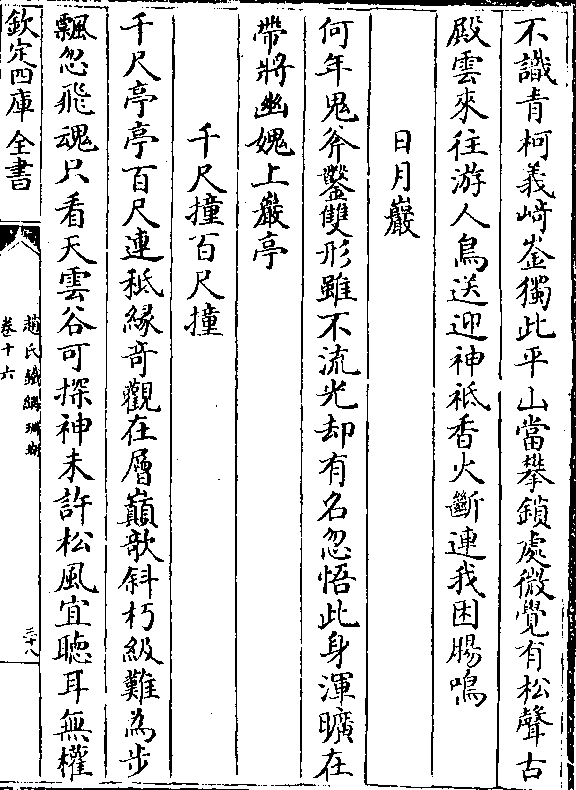 不識青柯義﨑崟獨此平山當攀鎖處微覺有松聲古
殿雲來往游人鳥送迎神祗香火斷連我困腸鳴
日月巖
何年鬼斧鑿雙形雖不流光却有名忽悟此身渾曠在
帶將幽媿上巖亭
千尺撞百尺撞
千尺亭亭百尺連秪緣奇觀在層巔欹斜朽級難為步
飄忽飛魂只看天雲谷可探神未許松風宜聴耳無權
欽定四庫全書
趙氏鐵網珊瑚
卷十六
三十八